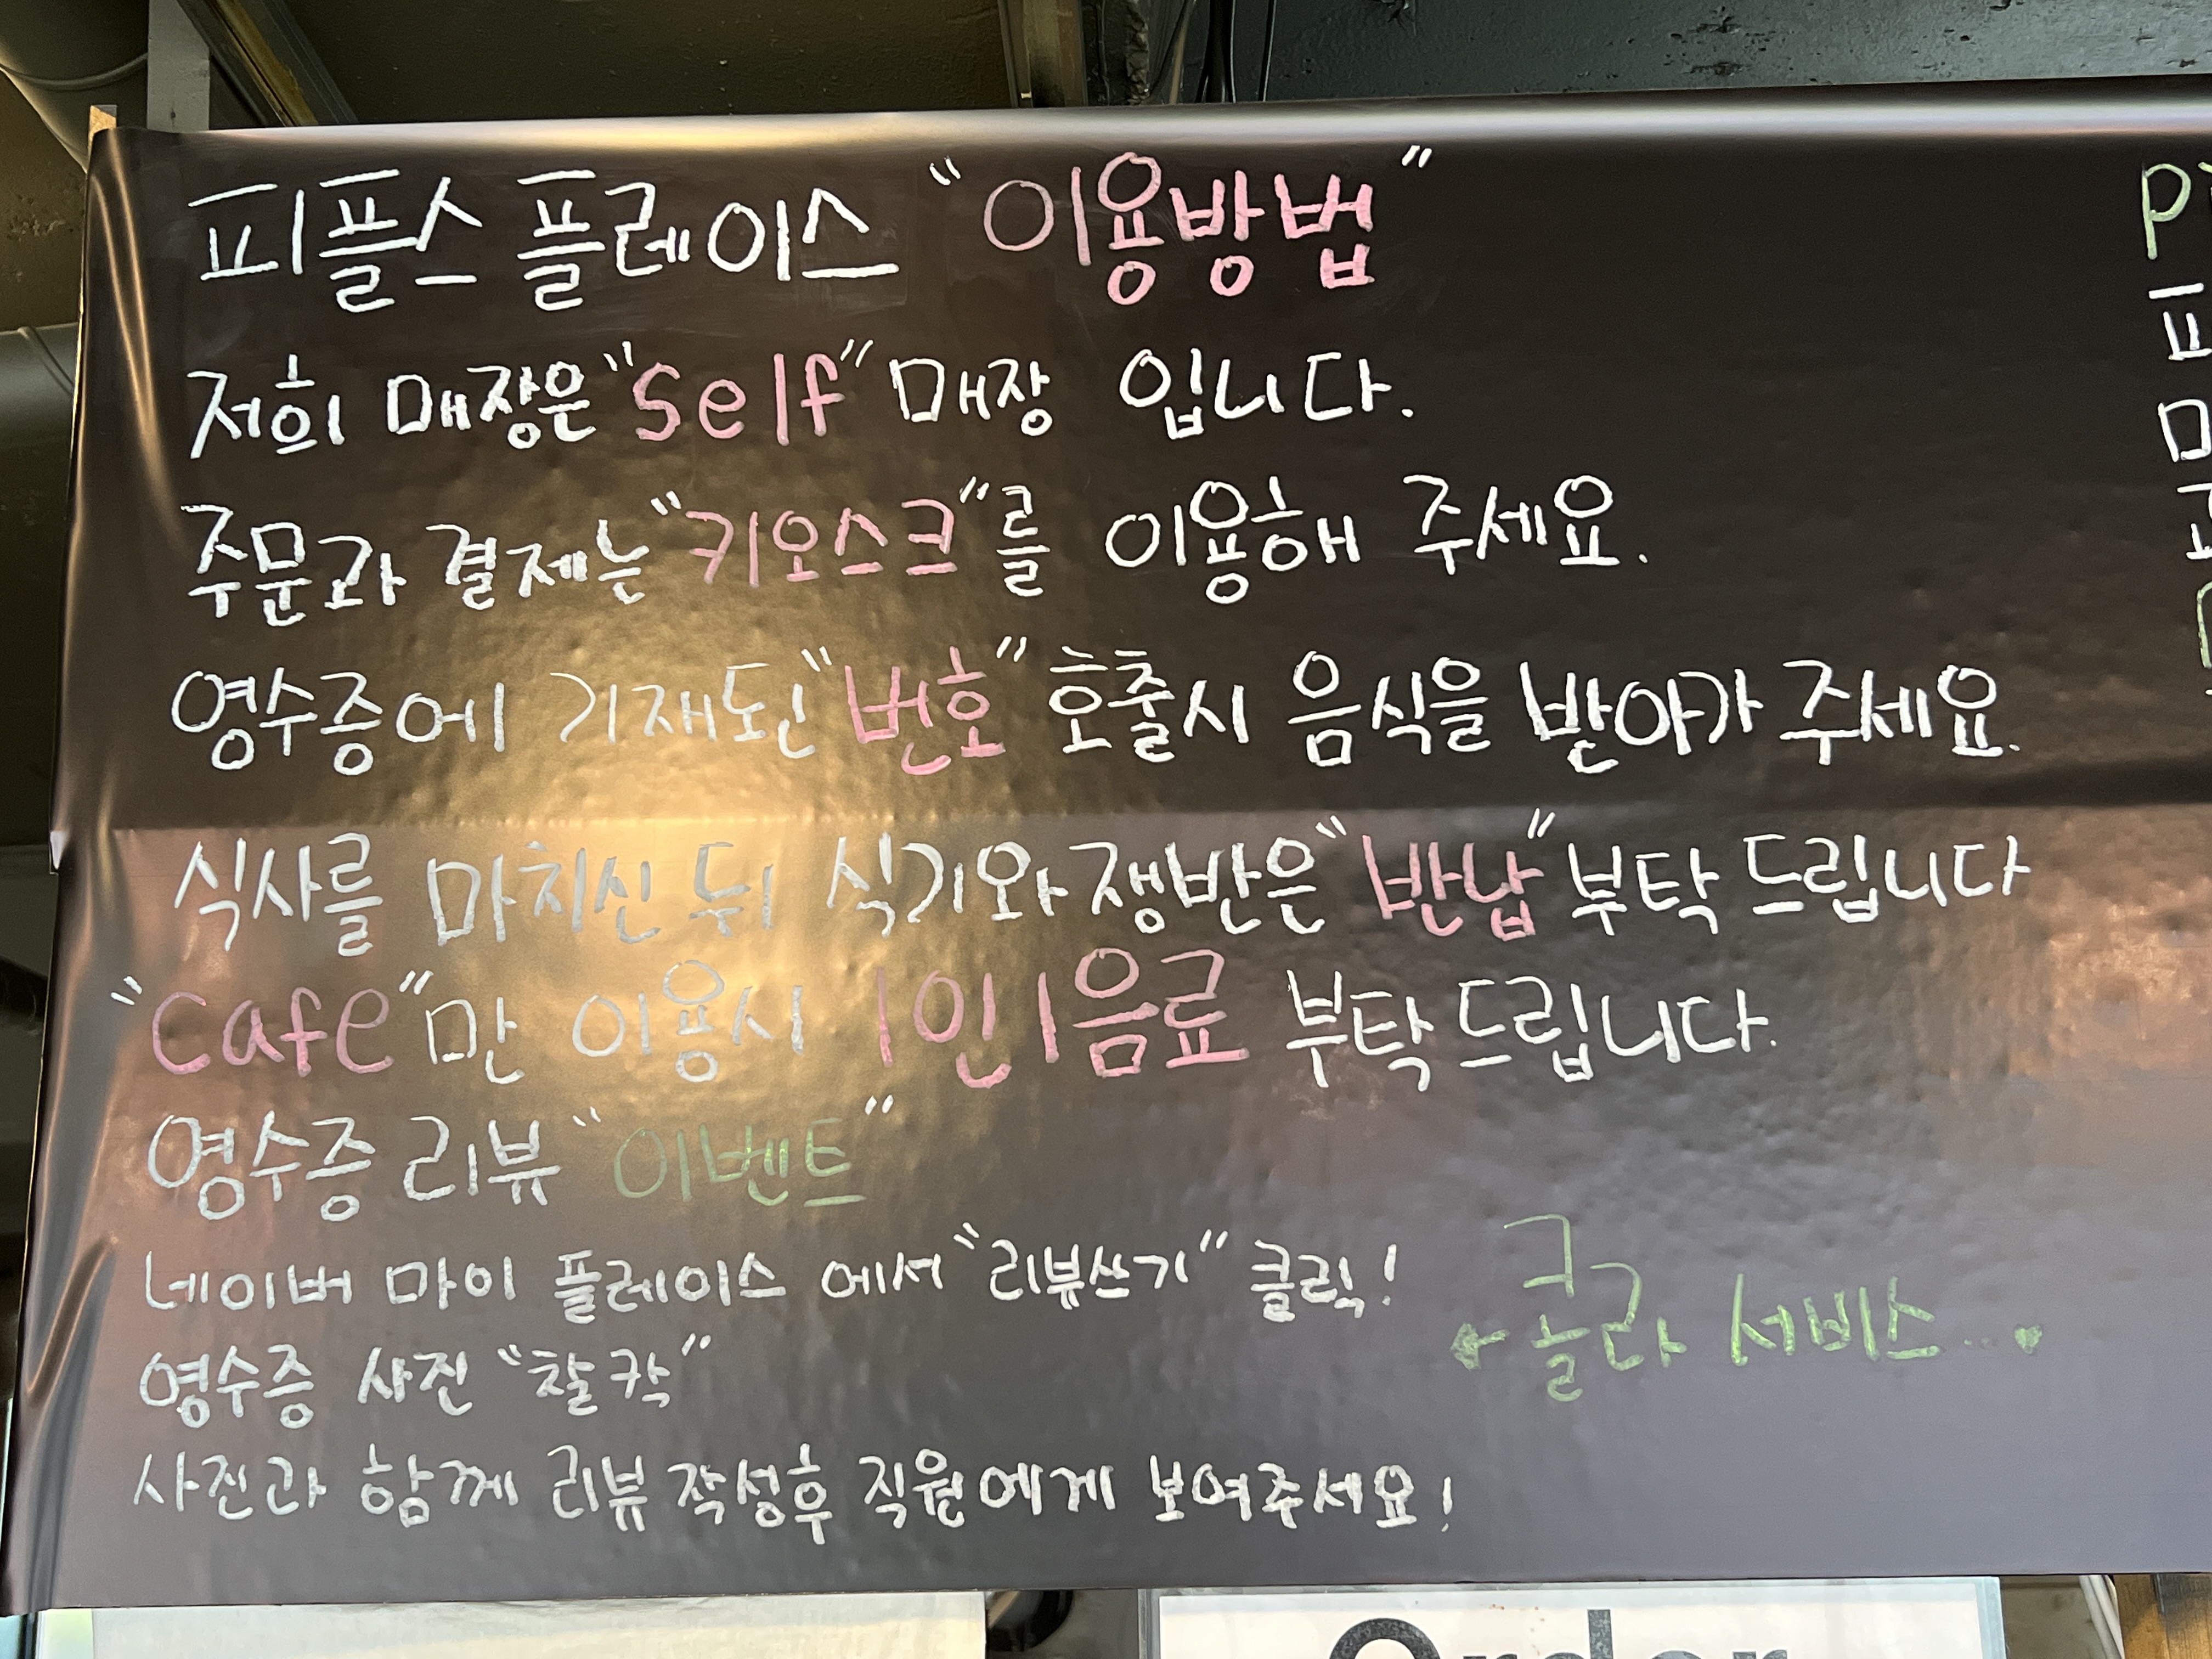 피플스 플레이스 "이용방법"
저희 매장은 "self" 매장 입니다.
주문과 결제는 "키오스크"를 이용해 주세요.
영수증에 기재된 "번호" 호출시 음식을 받아가 주세요.
식사를 마치신 뒤 식기와 쟁반은 "반납" 부탁 드립니다
"cafe"만 이용시 1인 1음료 부탁 드립니다.
영수증 리뷰 "이벤트"
네이버 마이 플레이스 에서 "리뷰쓰기" 클릭!
영수증 사진 "찰칵"
← 콜라 서비스...♥
사진과 함께 리뷰 작성후 직원에게 보여주세요!
Order